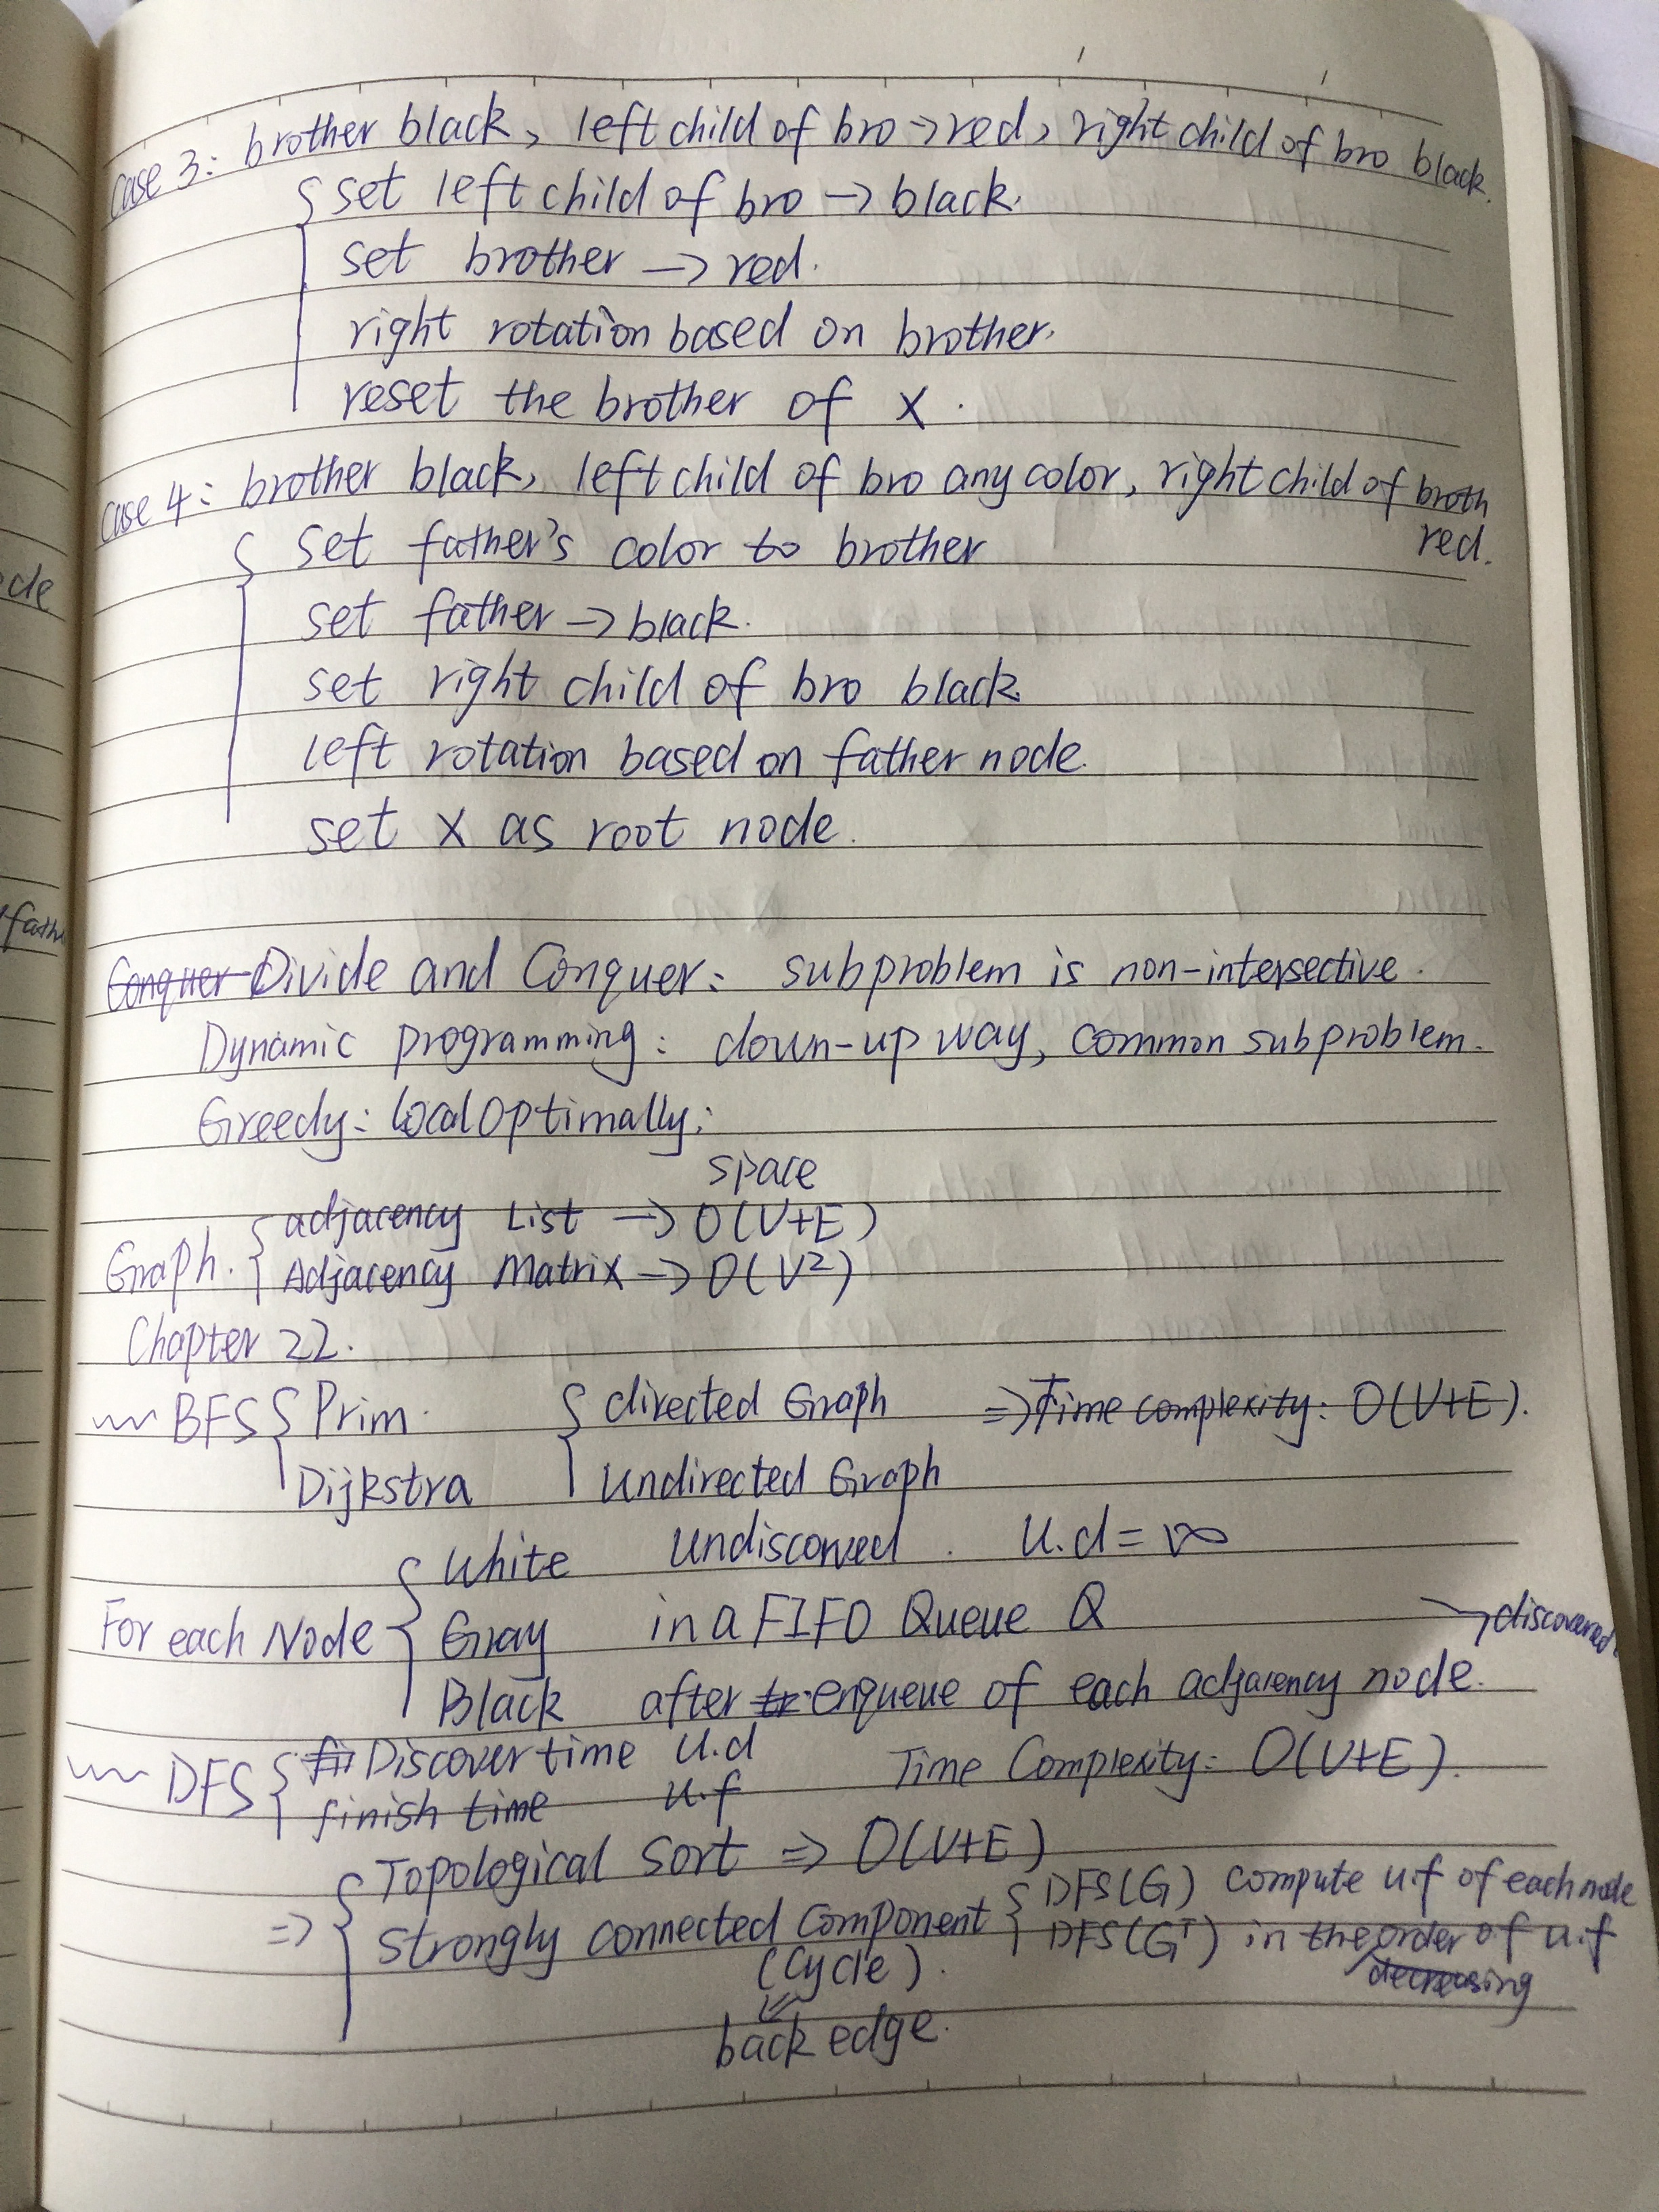 case 3: brother black, left child of bro → red, right child of bro black.
set left child of bro → black.
set brother → red.
right rotation based on brother.
reset the brother of x.
case 4: brother black, left child of bro any color, right child of broth
red.
set father's color to brother
set father → black.
set right child of bro black.
left rotation based on father node.
set x as root node.
Conquer Divide and Conquer: subproblem is non-intersective.
Dynamic programming: down-up way, common subproblem.
Greedy: local optimally;
space
adjacency List → O(V+E)
Graph.
Adjacency Matrix → O(V²)
Chapter 22.
BFS Prim. directed Graph ⇒ Time complexity: O(V+E).
Dijkstra undirected Graph
White undiscorved. u.d = ∞
For each Node Gray in a FIFO Queue Q → discovered
Black after enqueue of each adjacency node.
DFS Discover time u.d Time Complexity: O(V+E).
finish time u.f
⇒ Topological Sort ⇒ O(V+E)
strongly connected component DFS(G) compute u.f of each node
DFS(Gᵀ) in the order of u.f
decreasing
(cycle).
back edge.
ode
fath